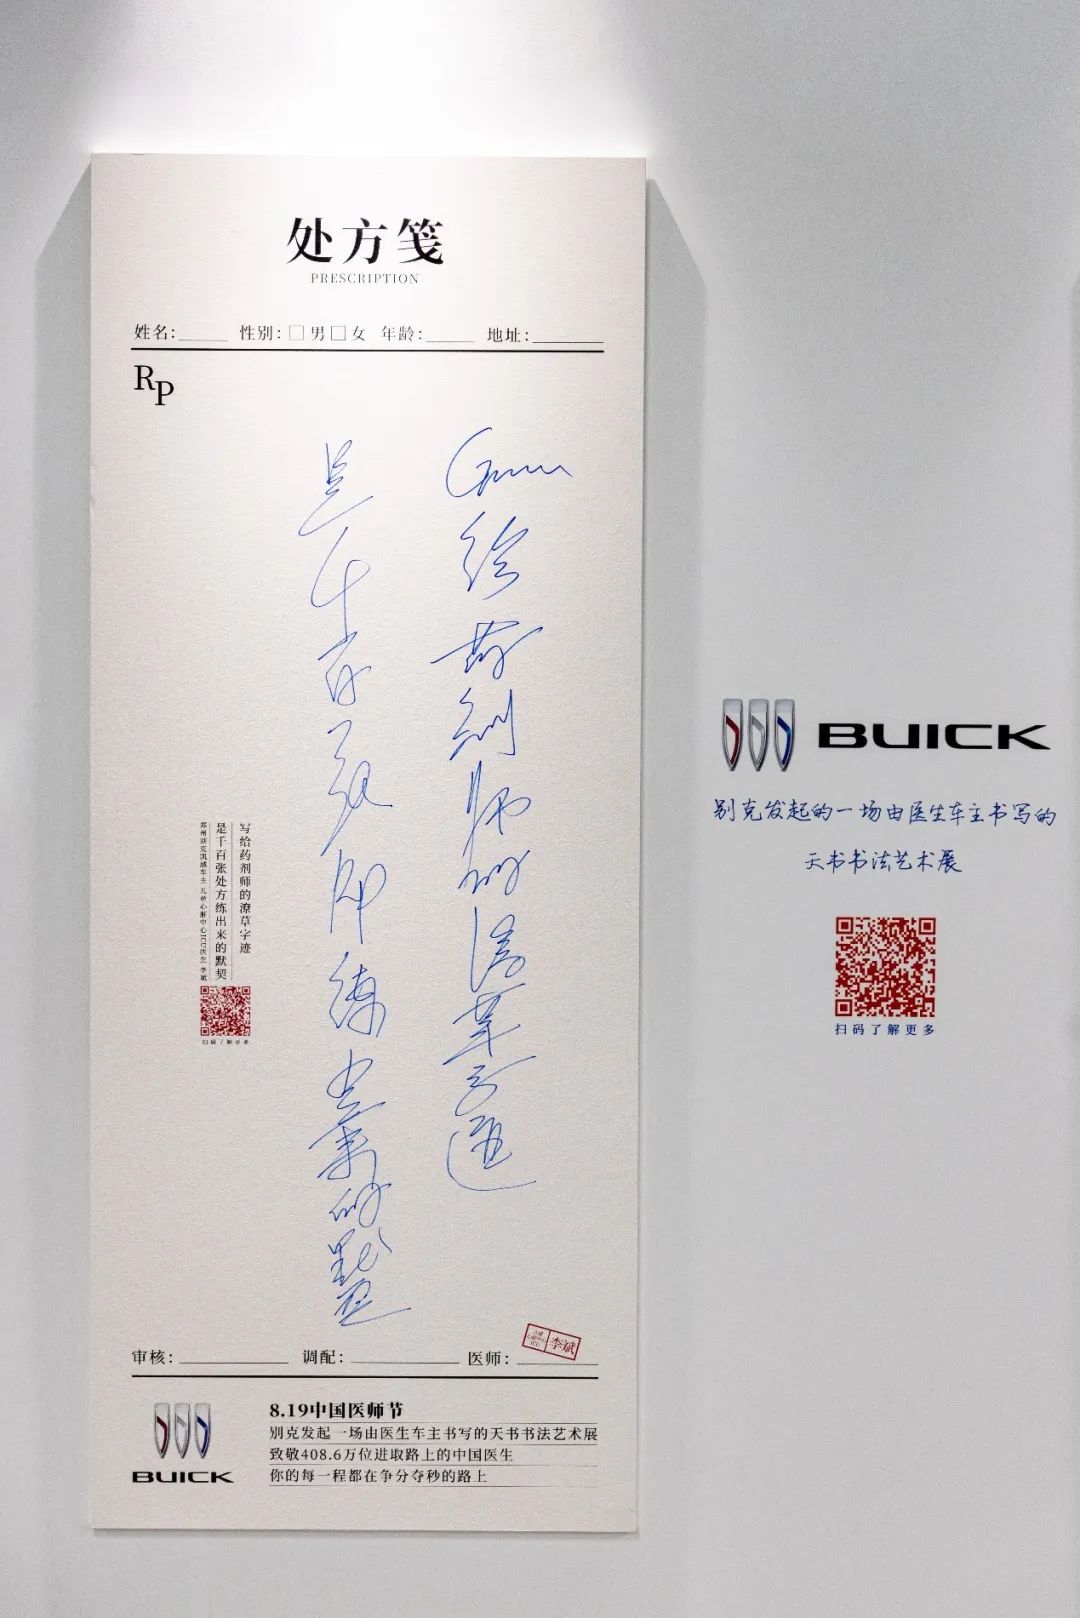 处方笺
PRESCRIPTION
姓名:______ 性别:□男□女 年龄:______ 地址:________
RP
写给药剂师的潦草字迹
是千百张处方练出来的默契
郑州别克凯威车主 儿童心脏中心ICU医生 李斌
扫码了解更多
审核:____________ 调配:____________ 医师:
李斌
BUICK
8.19中国医师节
别克发起一场由医生车主书写的天书书法艺术展
致敬408.6万位进取路上的中国医生
你的每一程都在争分夺秒的路上
BUICK
别克发起的一场由医生车主书写的
天书书法艺术展
扫码了解更多